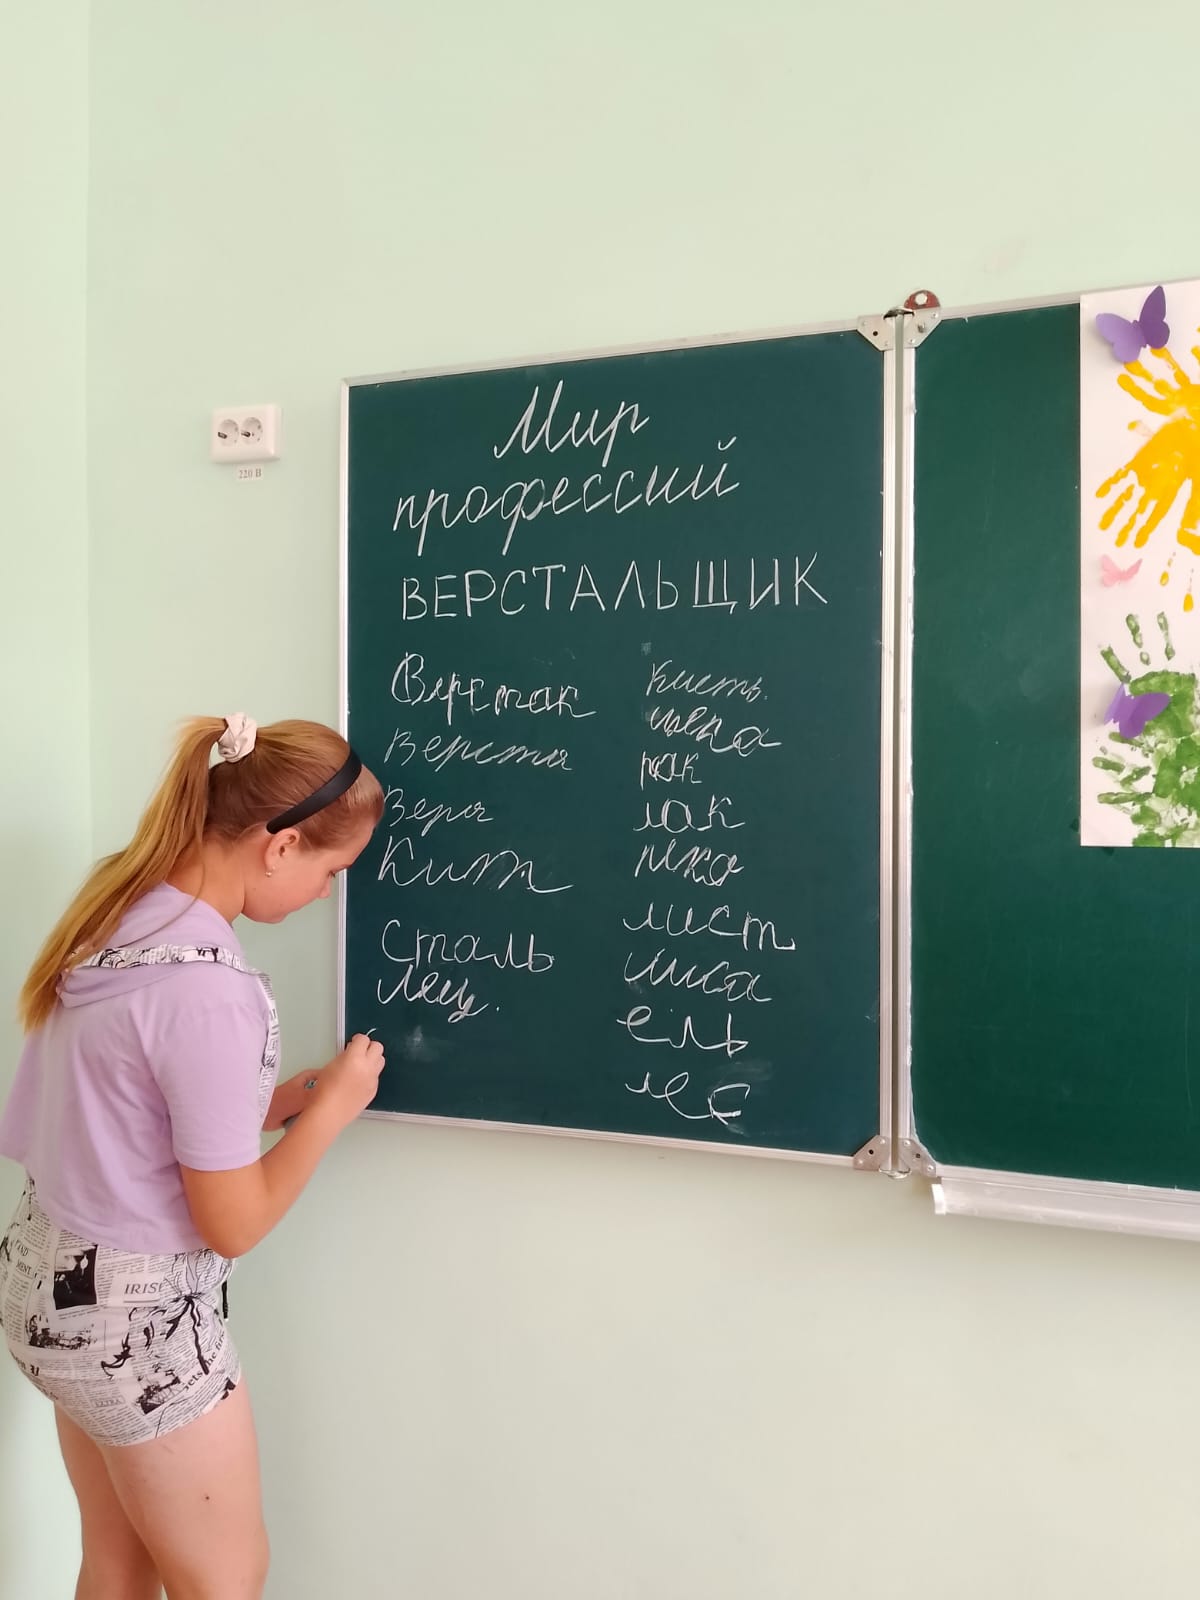 220 В
Мир
профессий
ВЕРСТАЛЬЩИК
Верстак
Верста
Вера
Кит
Сталь
Лещ.
Кисть.
щека
рак
лак
река
лист
лиса
ель
лес
IRISH
EXTRA